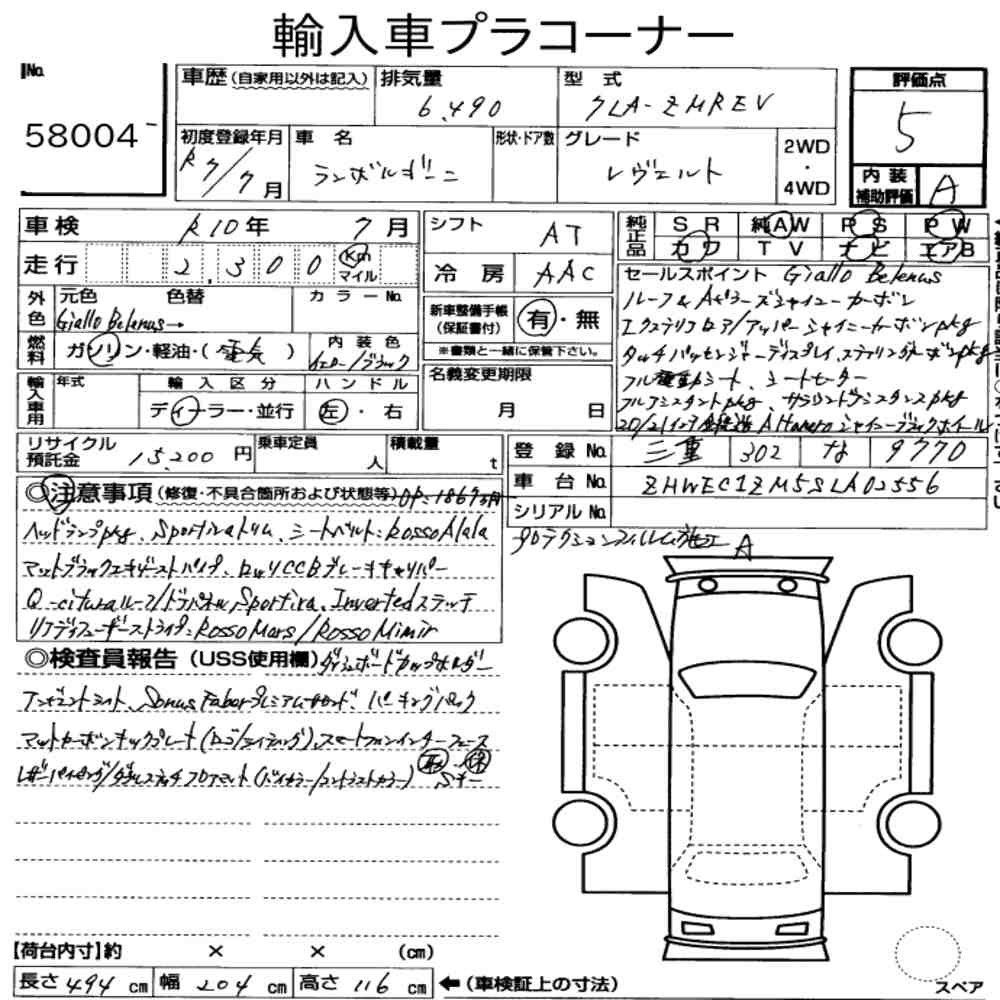 輸入車プラコーナー
No. 58004
車歴 (自家用以外は記入)
排気量 6,490
型式 7LA-ZMREV
評価点 5
初度登録年月 R7/7月
車名 ランボルギーニ
形状・ドア数
グレード レヴエルト
2WD・4WD
内装補助評価 A
車検 R10年 7月
シフト AT
純正品 SR 純AW PS PW
カワ TV ナビ エアB
走行 2,300 Km マイル
冷房 AAC
セールスポイント Giallo Belenus
外色 元色 色替 カラーNo.
Giallo Belenus→
ルーフ&Aピラーズシャイニーカーボン
新車整備手帳(保証書付) 有・無
※書類と一緒に保管下さい。
エクステリアロア/アッパーシャイニーカーボンpkg
燃料 ガソリン・軽油・(電気)
内装色 イエロー/ブラック
タッチパッセンジャーディスプレイ、ステアリングカーボンpkg
名義変更期限 月 日
フル電動シート、シートヒーター
輸入車用 年式 輸入区分 ハンドル
ディーラー・並行 左・右
フルアシスタントpkg
20/21インチ鍛造 Altanero シャイニーブラックホイール
リサイクル預託金 15,200円
乗車定員 人
積載量 t
登録No. 三重 302 な 9770
車台No. ZHWEC1ZM5SLA02556
シリアルNo.
◎注意事項 (修復・不具合箇所および状態等) OP:1867万円
ヘッドランプpkg、Sportivaトリム、シートベルト:Rosso Alala
プロテクションフィルム施工 A
マットブラックエキゾーストパイプ、ロッソCCBブレーキキャリパー
Q-citura ルーフ/ドアパネル、Sportiva、Inverted ステッチ
リアディフューザーストライプ:Rosso Mars/Rosso Mimir
◎検査員報告 (USS使用欄) ダッシュボードカップホルダー
アンビエントライト、Sonus Faber プレミアムサウンド、パーキングパック
マットカーボンキックプレート(ロゴ/ライティング)、スマートフォンインターフェース
レザーパイピング/ダブルステッチフロアマット(バイカラー/コントラストカラー) Sキー
【荷台内寸】約 × × (cm)
長さ 494 cm 幅 204 cm 高さ 116 cm ←(車検証上の寸法)
スペア